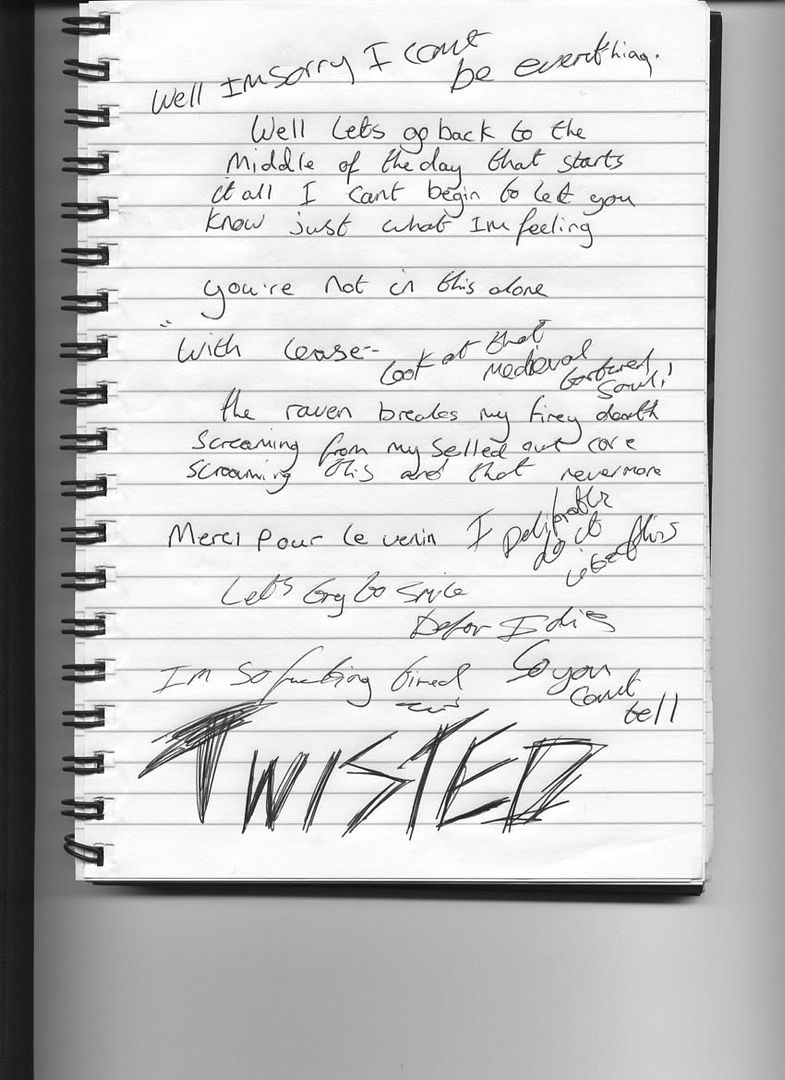 Well Im sorry I cant
be everything.
Well Lets go back to the
middle of the day that starts
it all I cant begin to let you
know just what Im feeling
you're not in this alone
"With cease--
Look at that
medieval
tortured
soul!
the raven breaks my firey death
screaming from my selled out core
screaming this and that nevermore
Merci pour le venin I
do it
Let's try to smile
Befor I die
Im so fucking tired
So you
cant
tell
TWISTED